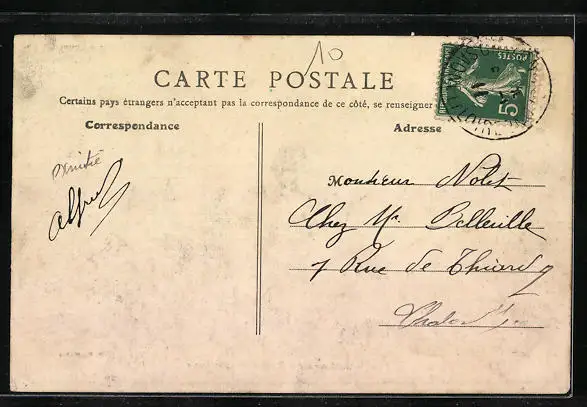 10
CARTE POSTALE
Certains pays étrangers n'acceptant pas la correspondance de ce côté, se renseigner
Correspondance
Adresse
POSTES
5
Amitié
Alfred
Monsieur Nolet
Chez Mr Belleville
7 Rue de Thiard
Chalon